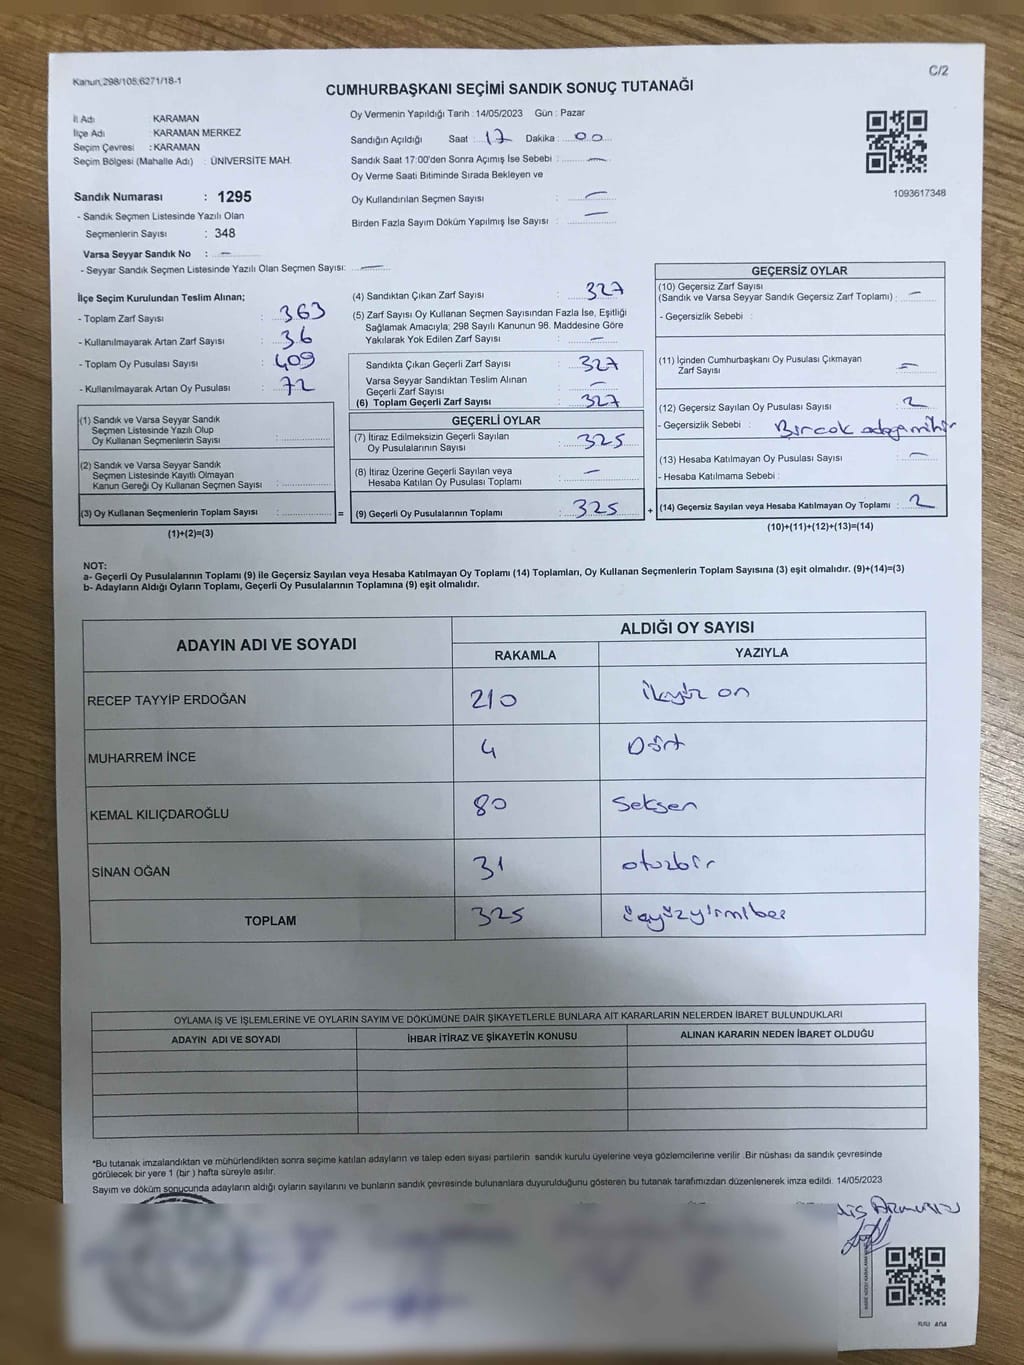 Kanun;298/105;6271/18-1
C/2
CUMHURBAŞKANI SEÇİMİ SANDIK SONUÇ TUTANAĞI
İl Adı KARAMAN
İlçe Adı : KARAMAN MERKEZ
Seçim Çevresi : KARAMAN
Seçim Bölgesi (Mahalle Adı) : ÜNİVERSİTE MAH.
Sandık Numarası : 1295
- Sandık Seçmen Listesinde Yazılı Olan
Seçmenlerin Sayısı : 348
Varsa Seyyar Sandık No : —
- Seyyar Sandık Seçmen Listesinde Yazılı Olan Seçmen Sayısı: —
Oy Vermenin Yapıldığı Tarih : 14/05/2023 Gün : Pazar
Sandığın Açıldığı Saat : 17 Dakika : 00
Sandık Saat 17:00'den Sonra Açımış İse Sebebi : —
Oy Verme Saati Bitiminde Sırada Bekleyen ve
Oy Kullandırılan Seçmen Sayısı : —
Birden Fazla Sayım Döküm Yapılmış İse Sayısı : —
1093617348
İlçe Seçim Kurulundan Teslim Alınan;
- Toplam Zarf Sayısı : 363
- Kullanılmayarak Artan Zarf Sayısı : 36
- Toplam Oy Pusulası Sayısı : 409
- Kullanılmayarak Artan Oy Pusulası : 72
(1) Sandık ve Varsa Seyyar Sandık
Seçmen Listesinde Yazılı Olup
Oy Kullanan Seçmenlerin Sayısı :
(2) Sandık ve Varsa Seyyar Sandık
Seçmen Listesinde Kayıtlı Olmayan
Kanun Gereği Oy Kullanan Seçmen Sayısı :
(3) Oy Kullanan Seçmenlerin Toplam Sayısı : =
(1)+(2)=(3)
(4) Sandıktan Çıkan Zarf Sayısı : 327
(5) Zarf Sayısı Oy Kullanan Seçmen Sayısından Fazla İse, Eşitliği
Sağlamak Amacıyla; 298 Sayılı Kanunun 98. Maddesine Göre
Yakılarak Yok Edilen Zarf Sayısı : —
Sandıkta Çıkan Geçerli Zarf Sayısı : 327
Varsa Seyyar Sandıktan Teslim Alınan
Geçerli Zarf Sayısı : —
(6) Toplam Geçerli Zarf Sayısı : 327
GEÇERLİ OYLAR
(7) İtiraz Edilmeksizin Geçerli Sayılan
Oy Pusulasının Sayısı : 325
(8) İtiraz Üzerine Geçerli Sayılan veya
Hesaba Katılan Oy Pusulası Toplamı : —
(9) Geçerli Oy Pusulalarının Toplamı : 325 +
GEÇERSİZ OYLAR
(10) Geçersiz Zarf Sayısı
(Sandık ve Varsa Seyyar Sandık Geçersiz Zarf Toplamı) : —
- Geçersizlik Sebebi :
(11) İçinden Cumhurbaşkanı Oy Pusulası Çıkmayan
Zarf Sayısı : —
(12) Geçersiz Sayılan Oy Pusulası Sayısı : 2
- Geçersizlik Sebebi : Bırcok
(13) Hesaba Katılmayan Oy Pusulası Sayısı : —
- Hesaba Katılmama Sebebi :
(14) Geçersiz Sayılan veya Hesaba Katılmayan Oy Toplamı : 2
(10)+(11)+(12)+(13)=(14)
NOT:
a- Geçerli Oy Pusulalarının Toplamı (9) ile Geçersiz Sayılan veya Hesaba Katılmayan Oy Toplamı (14) Toplamları, Oy Kullanan Seçmenlerin Toplam Sayısına (3) eşit olmalıdır. (9)+(14)=(3)
b- Adayların Aldığı Oyların Toplamı, Geçerli Oy Pusulalarının Toplamına (9) eşit olmalıdır.
ADAYIN ADI VE SOYADI ALDIĞI OY SAYISI
RAKAMLA YAZIYLA
RECEP TAYYİP ERDOĞAN 210 ikiyüz on
MUHARREM İNCE 4 Dört
KEMAL KILIÇDAROĞLU 80 Seksen
SİNAN OĞAN 31 otuzbir
TOPLAM 325 üçyüzyirmibeş
OYLAMA İŞ VE İŞLEMLERİNE VE OYLARIN SAYIM VE DÖKÜMÜNE DAİR ŞİKAYETLERLE BUNLARA AİT KARARLARIN NELERDEN İBARET BULUNDUKLARI
ADAYIN ADI VE SOYADI İHBAR İTİRAZ VE ŞİKAYETİN KONUSU ALINAN KARARIN NEDEN İBARET OLDUĞU
*Bu tutanak imzalandıktan ve mühürlendikten sonra seçime katılan adayların ve talep eden siyasi partilerin sandık kurulu üyelerine veya gözlemcilerine verilir .Bir nüshası da sandık çevresinde
görülecek bir yere 1 (bir ) hafta süreyle asılır.
Sayım ve döküm sonucunda adayların aldığı oyların sayılarını ve bunların sandık çevresinde bulunanlara duyurulduğunu gösteren bu tutanak tarafımızdan düzenlenerek imza edildi. 14/05/2023